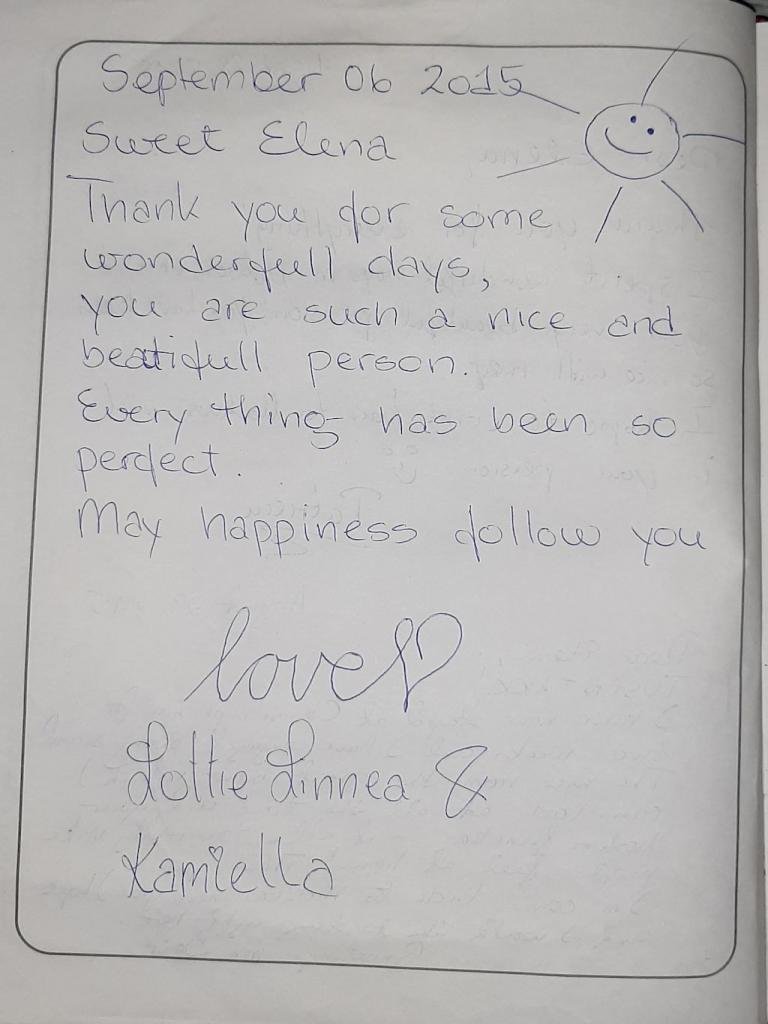 September 06 2015
Sweet Elena
Thank you for some
wonderfull days,
you are such a nice and
beatifull person.
Every thing has been so
perfect.
May happiness follow you
love
Lottie Linnea &
Kamiella